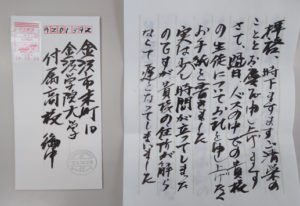 9201392
金沢市末町10
金沢学院大学
付属高校 御中
拝啓、時下ますますご清栄の
こととお慶び申し上げます
さて、臨日バスの中での貴校
の生徒についてお礼を申し上げたく
お手紙を書きました
実はもう時間が立ってしまった
のですが貴校の住所が解ら
なくて遅くなってしまいました